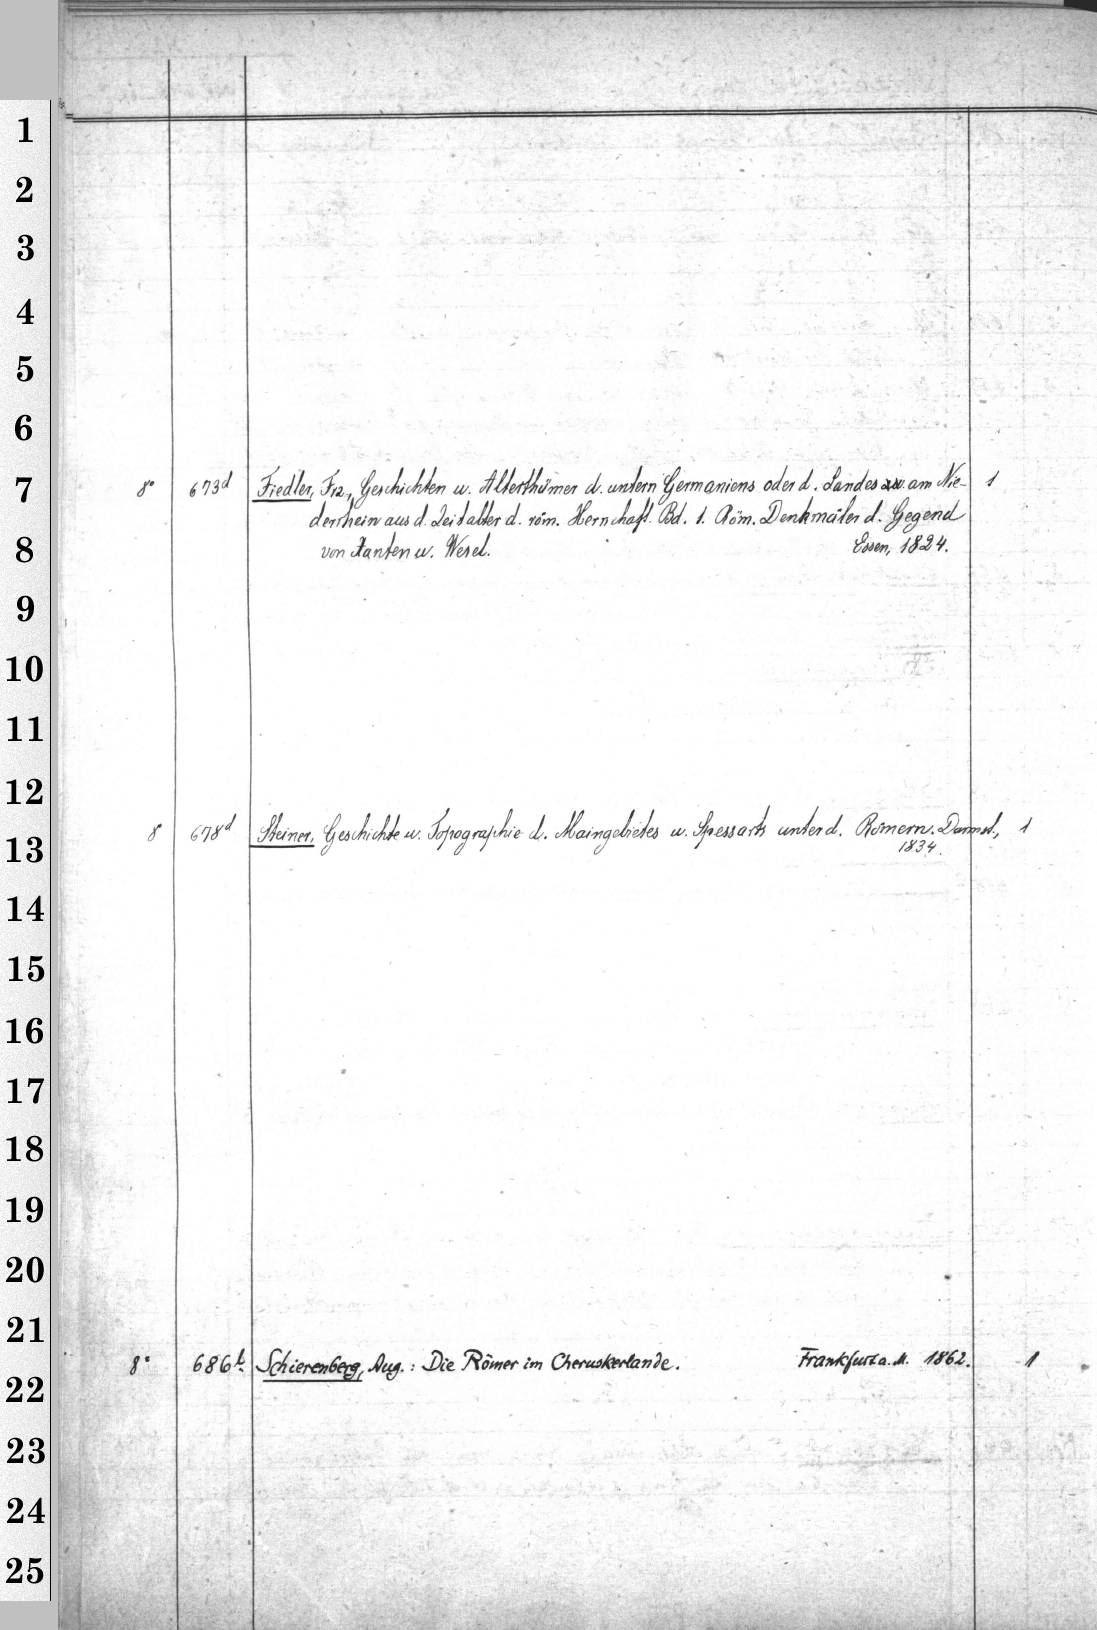 1
2
3
4
5
6
7
8° 673d Fiedler, Frz., Geschichten u. Alterthümer d. untern Germaniens oder d. Landes am Nie-
1
derrhein aus d. Zeitalter d. röm. Herrschaft. Bd. 1. Röm. Denkmäler d. Gegend
8
von Xanten u. Wesel. Essen, 1824.
9
10
11
12
8 678d Steiner, Geschichte u. Topographie d. Maingebietes u. Spessarts unter d. Römern. Darmst., 1
13
1834.
14
15
16
17
18
19
20
21
8° 686b. Schierenberg, Aug.: Die Römer im Cheruskerlande. Frankfurt a. M. 1862. 1
22
23
24
25